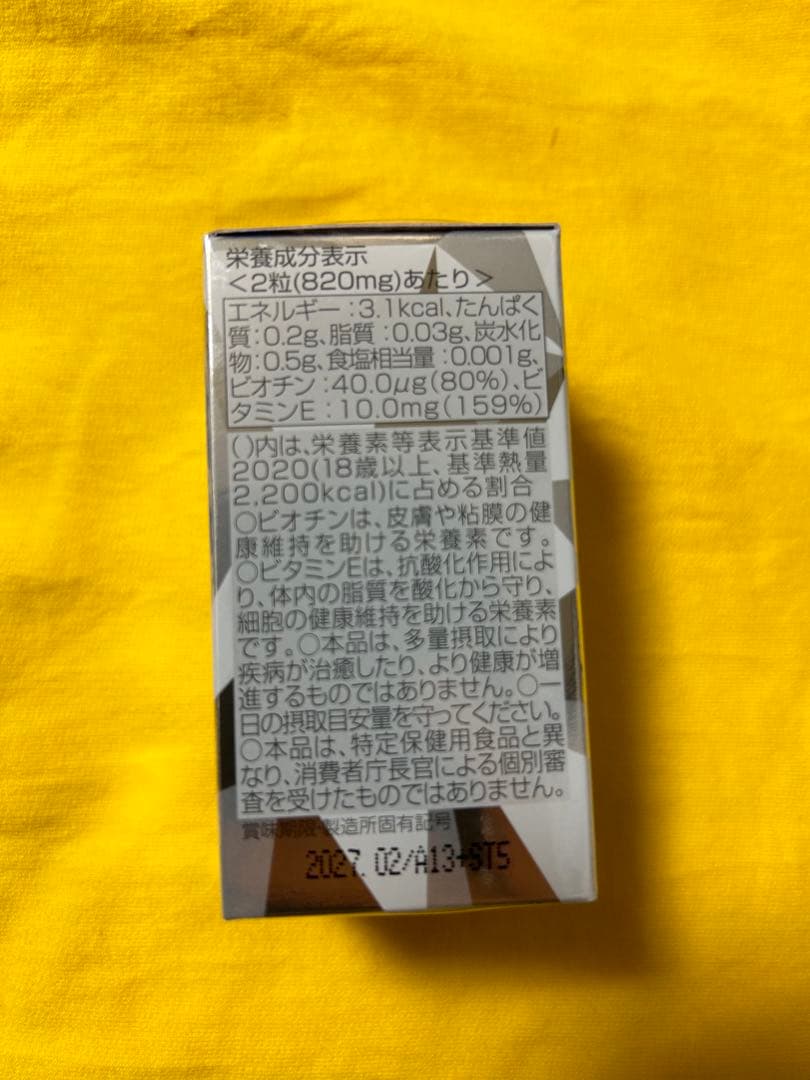 栄養成分表示
<2粒(820mg)あたり>
エネルギー:3.1kcal、たんぱく
質:0.2g、脂質:0.03g、炭水化
物:0.5g、食塩相当量:0.001g、
ビオチン:40.0μg(80%)、ビ
タミンE:10.0mg(159%)
()内は、栄養素等表示基準値
2020(18歳以上、基準熱量
2,200kcal)に占める割合
○ビオチンは、皮膚や粘膜の健
康維持を助ける栄養素です。
○ビタミンEは、抗酸化作用によ
り、体内の脂質を酸化から守り、
細胞の健康維持を助ける栄養素
です。○本品は、多量摂取により
疾病が治癒したり、より健康が増
進するものではありません。○一
日の摂取目安量を守ってください。
○本品は、特定保健用食品と異
なり、消費者庁長官による個別審
査を受けたものではありません。
賞味期限・製造所固有記号
2027.02/A13+ST5